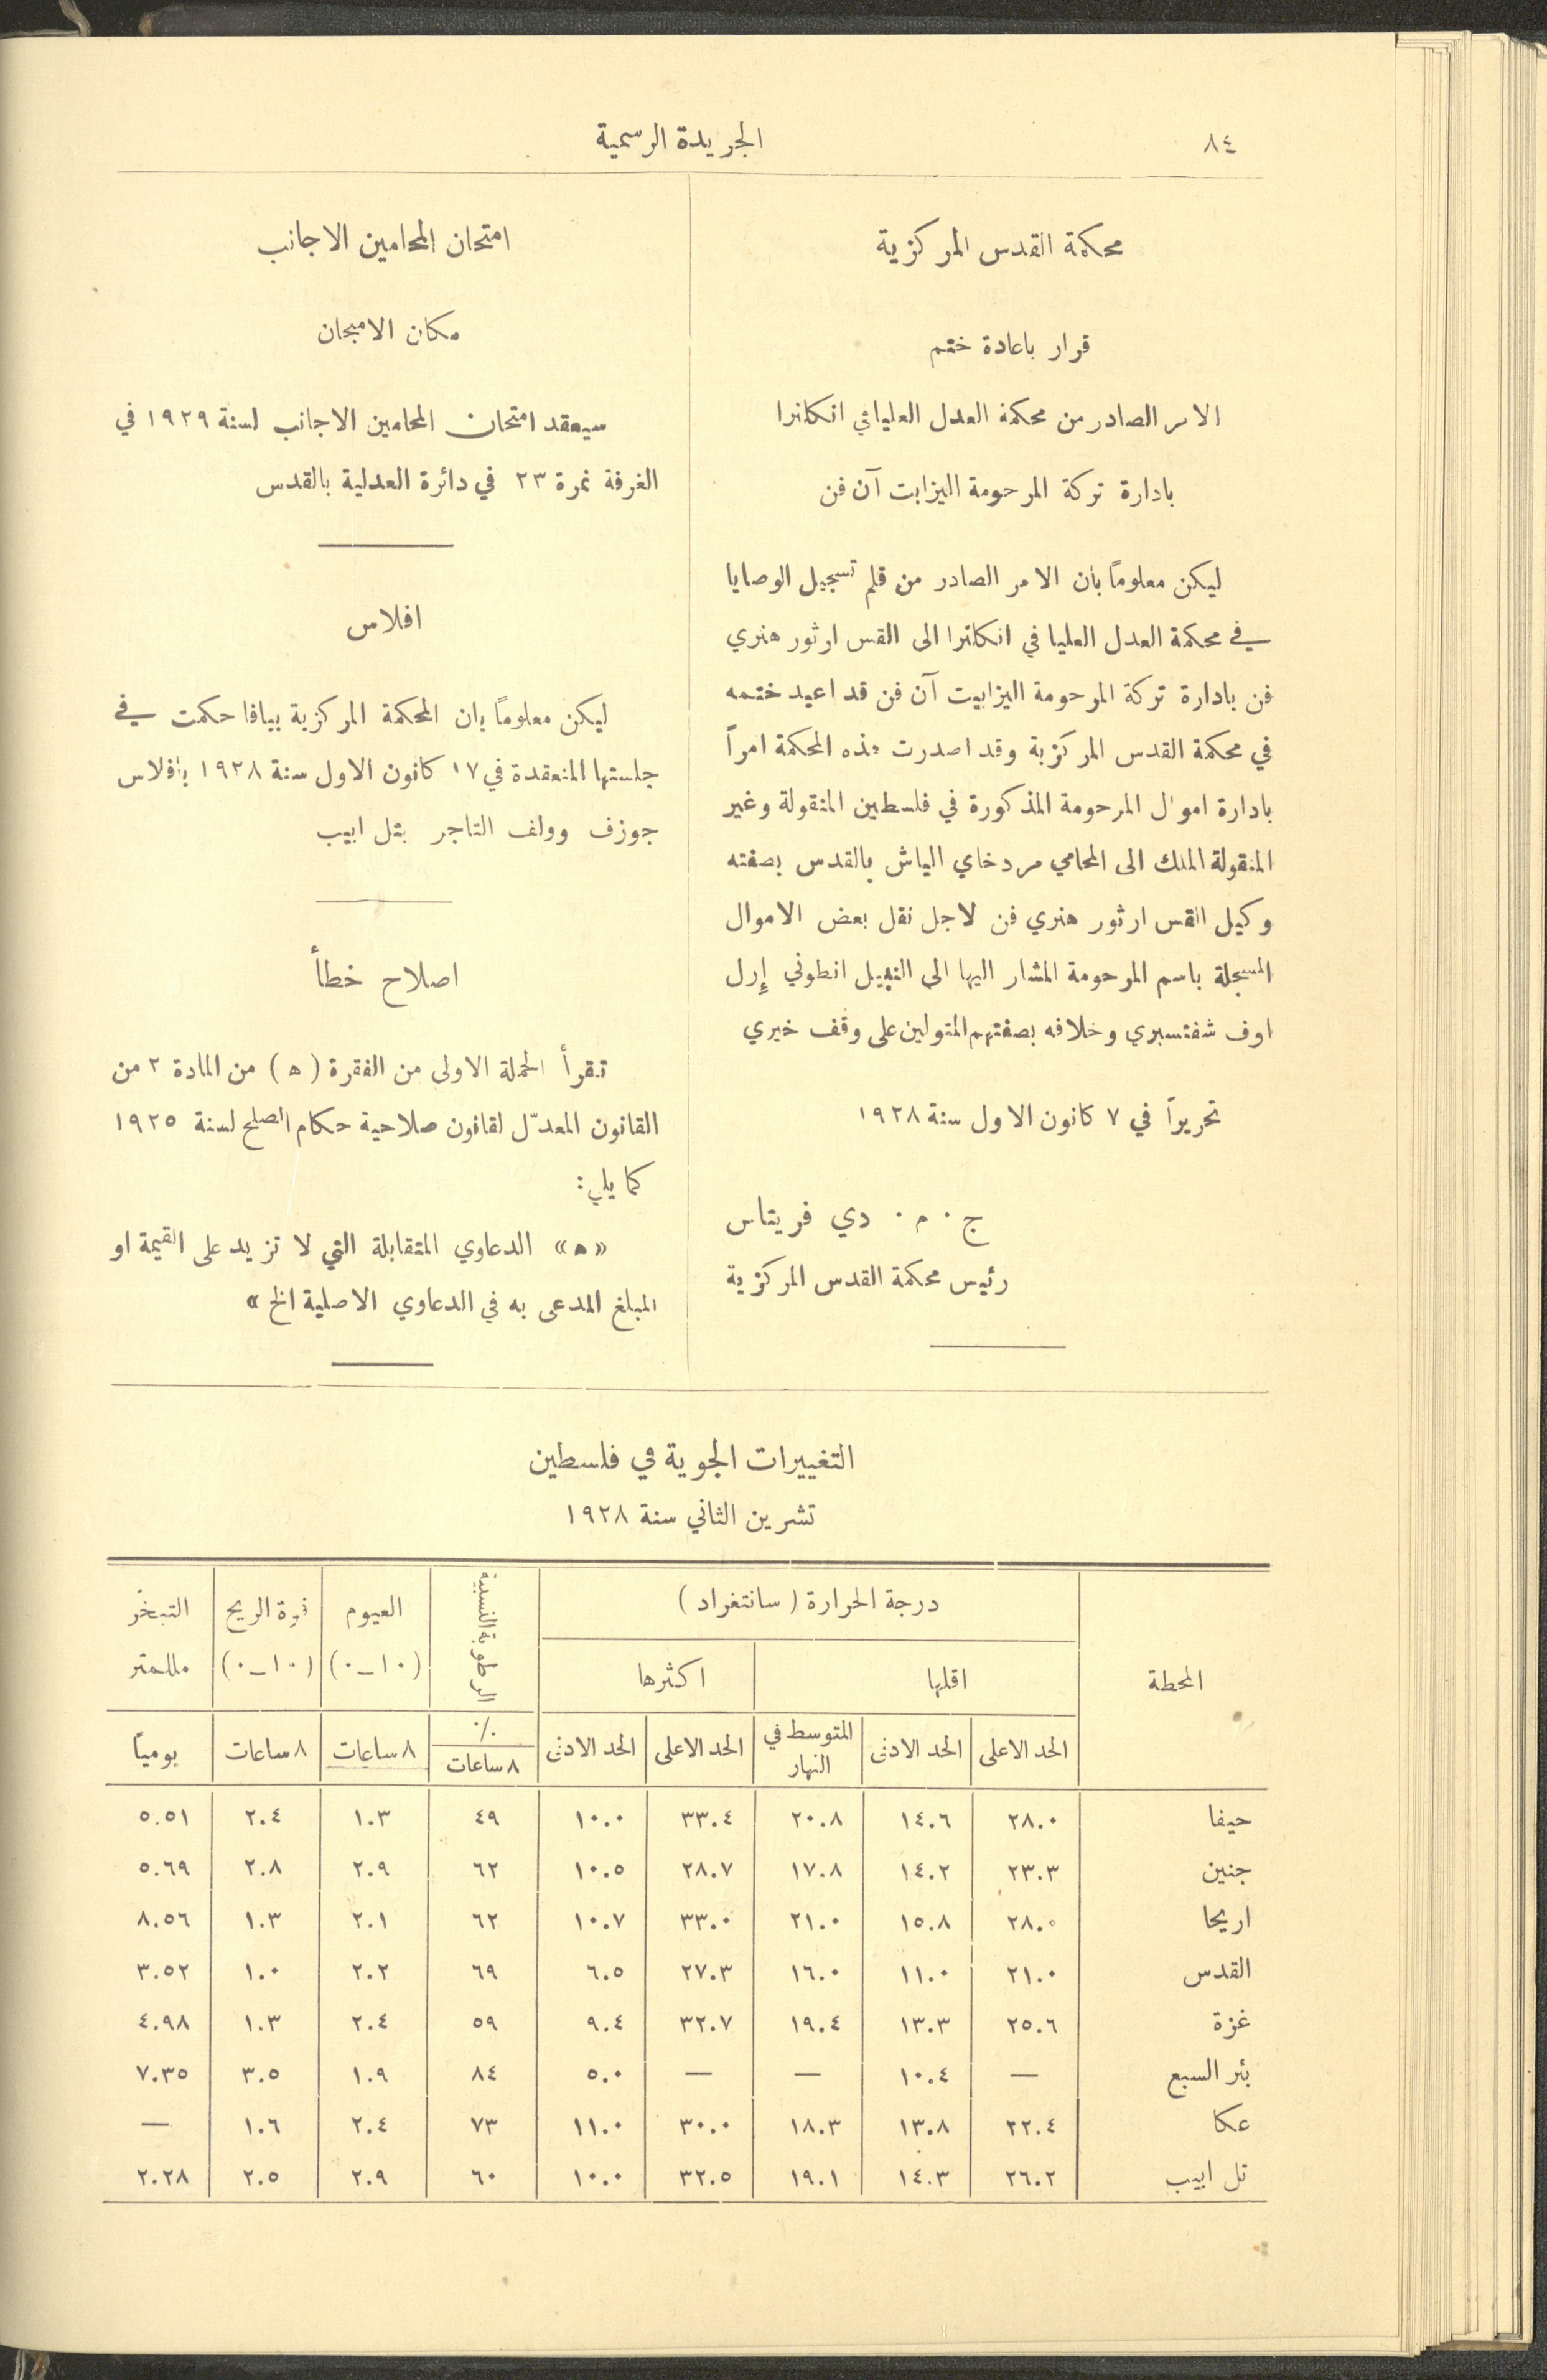 ٨٤
الجريدة الرسمية
محكمة القدس المركزية
قرار باعادة ختم
الامر الصادر من محكمة العدل العليا في انكلترا
بادارة تركة المرحومة اليزابت آن فن
ليكن معلوماً بان الامر الصادر من قلم تسجيل الوصايا
في محكمة العدل العليا في انكلترا الى القس ارثور هنري
فن بادارة تركة المرحومة اليزابيت آن فن قد اعيد ختمه
في محكمة القدس المركزية وقد اصدرت هذه المحكمة امراً
بادارة اموال المرحومة المذكورة في فلسطين المنقولة وغير
المنقولة الملك الى المحامي مردخاي الياش بالقدس بصفته
وكيل القس ارثور هنري فن لاجل نقل بعض الاموال
المسجلة باسم المرحومة المشار اليها الى النبيل انطوني إرل
اوف شفتسبري وخلافه بصفتهم المتولين على وقف خيري
تحريراً في ٧ كانون الاول سنة ١٩٢٨
ج ٠ م ٠ دي فريتاس
رئيس محكمة القدس المركزية
امتحان المحامين الاجانب
مكان الامتحان
سيعقد امتحان المحامين الاجانب لسنة ١٩٢٩ في
الغرفة نمرة ٢٣ في دائرة العدلية بالقدس
افلاس
ليكن معلوماً بان المحكمة المركزية بيافا حكمت في
جلستها المنعقدة في ١٧ كانون الاول سنة ١٩٢٨ بافلاس
جوزف وولف التاجر بتل ابيب
اصلاح خطأ
تقرأ الجملة الاولى من الفقرة (ه) من المادة ٢ من
القانون المعدّل لقانون صلاحية حكام الصلح لسنة ١٩٢٥
كما يلي:
«ه» الدعاوي المتقابلة التي لا تزيد على القيمة او
المبلغ المدعى به في الدعاوي الاصلية الخ»
التغييرات الجوية في فلسطين
تشرين الثاني سنة ١٩٢٨
المحطة درجة الحرارة (سانتغراد) الرطوبة النسبية العيوم قوة الريح التبخر
اقلها اكثرها (١٠-٠) (١٠-٠) مللمتر
الحد الاعلى الحد الادنى المتوسط في النهار الحد الاعلى الحد الادنى ٪ ٨ ساعات ٨ ساعات ٨ ساعات يومياً
حيفا ٢٨.٠ ١٤.٦ ٢٠.٨ ٣٣.٤ ١٠.٠ ٤٩ ١.٣ ٢.٤ ٥.٥١
جنين ٢٣.٣ ١٤.٢ ١٧.٨ ٢٨.٧ ١٠.٥ ٦٢ ٢.٩ ٢.٨ ٥.٦٩
اريحا ٢٨.٠ ١٥.٨ ٢١.٠ ٣٣.٠ ١٠.٧ ٦٢ ٢.١ ١.٣ ٨.٥٦
القدس ٢١.٠ ١١.٠ ١٦.٠ ٢٧.٣ ٦.٥ ٦٩ ٢.٢ ١.٠ ٣.٥٢
غزة ٢٥.٦ ١٣.٣ ١٩.٤ ٣٢.٧ ٩.٤ ٥٩ ٢.٤ ١.٣ ٤.٩٨
بئر السبع — ١٠.٤ — — ٥.٠ ٨٤ ١.٩ ٣.٥ ٧.٣٥
عكا ٢٢.٤ ١٣.٨ ١٨.٣ ٣٠.٠ ١١.٠ ٧٣ ٢.٤ ١.٦ —
تل ابيب ٢٦.٢ ١٤.٣ ١٩.١ ٣٢.٥ ١٠.٠ ٦٠ ٢.٩ ٢.٥ ٢.٢٨